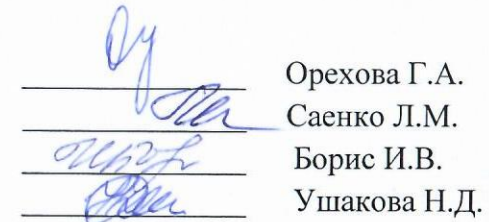 Орехова Г.А.
Саенко Л.М.
Борис И.В.
Ушакова Н.Д.